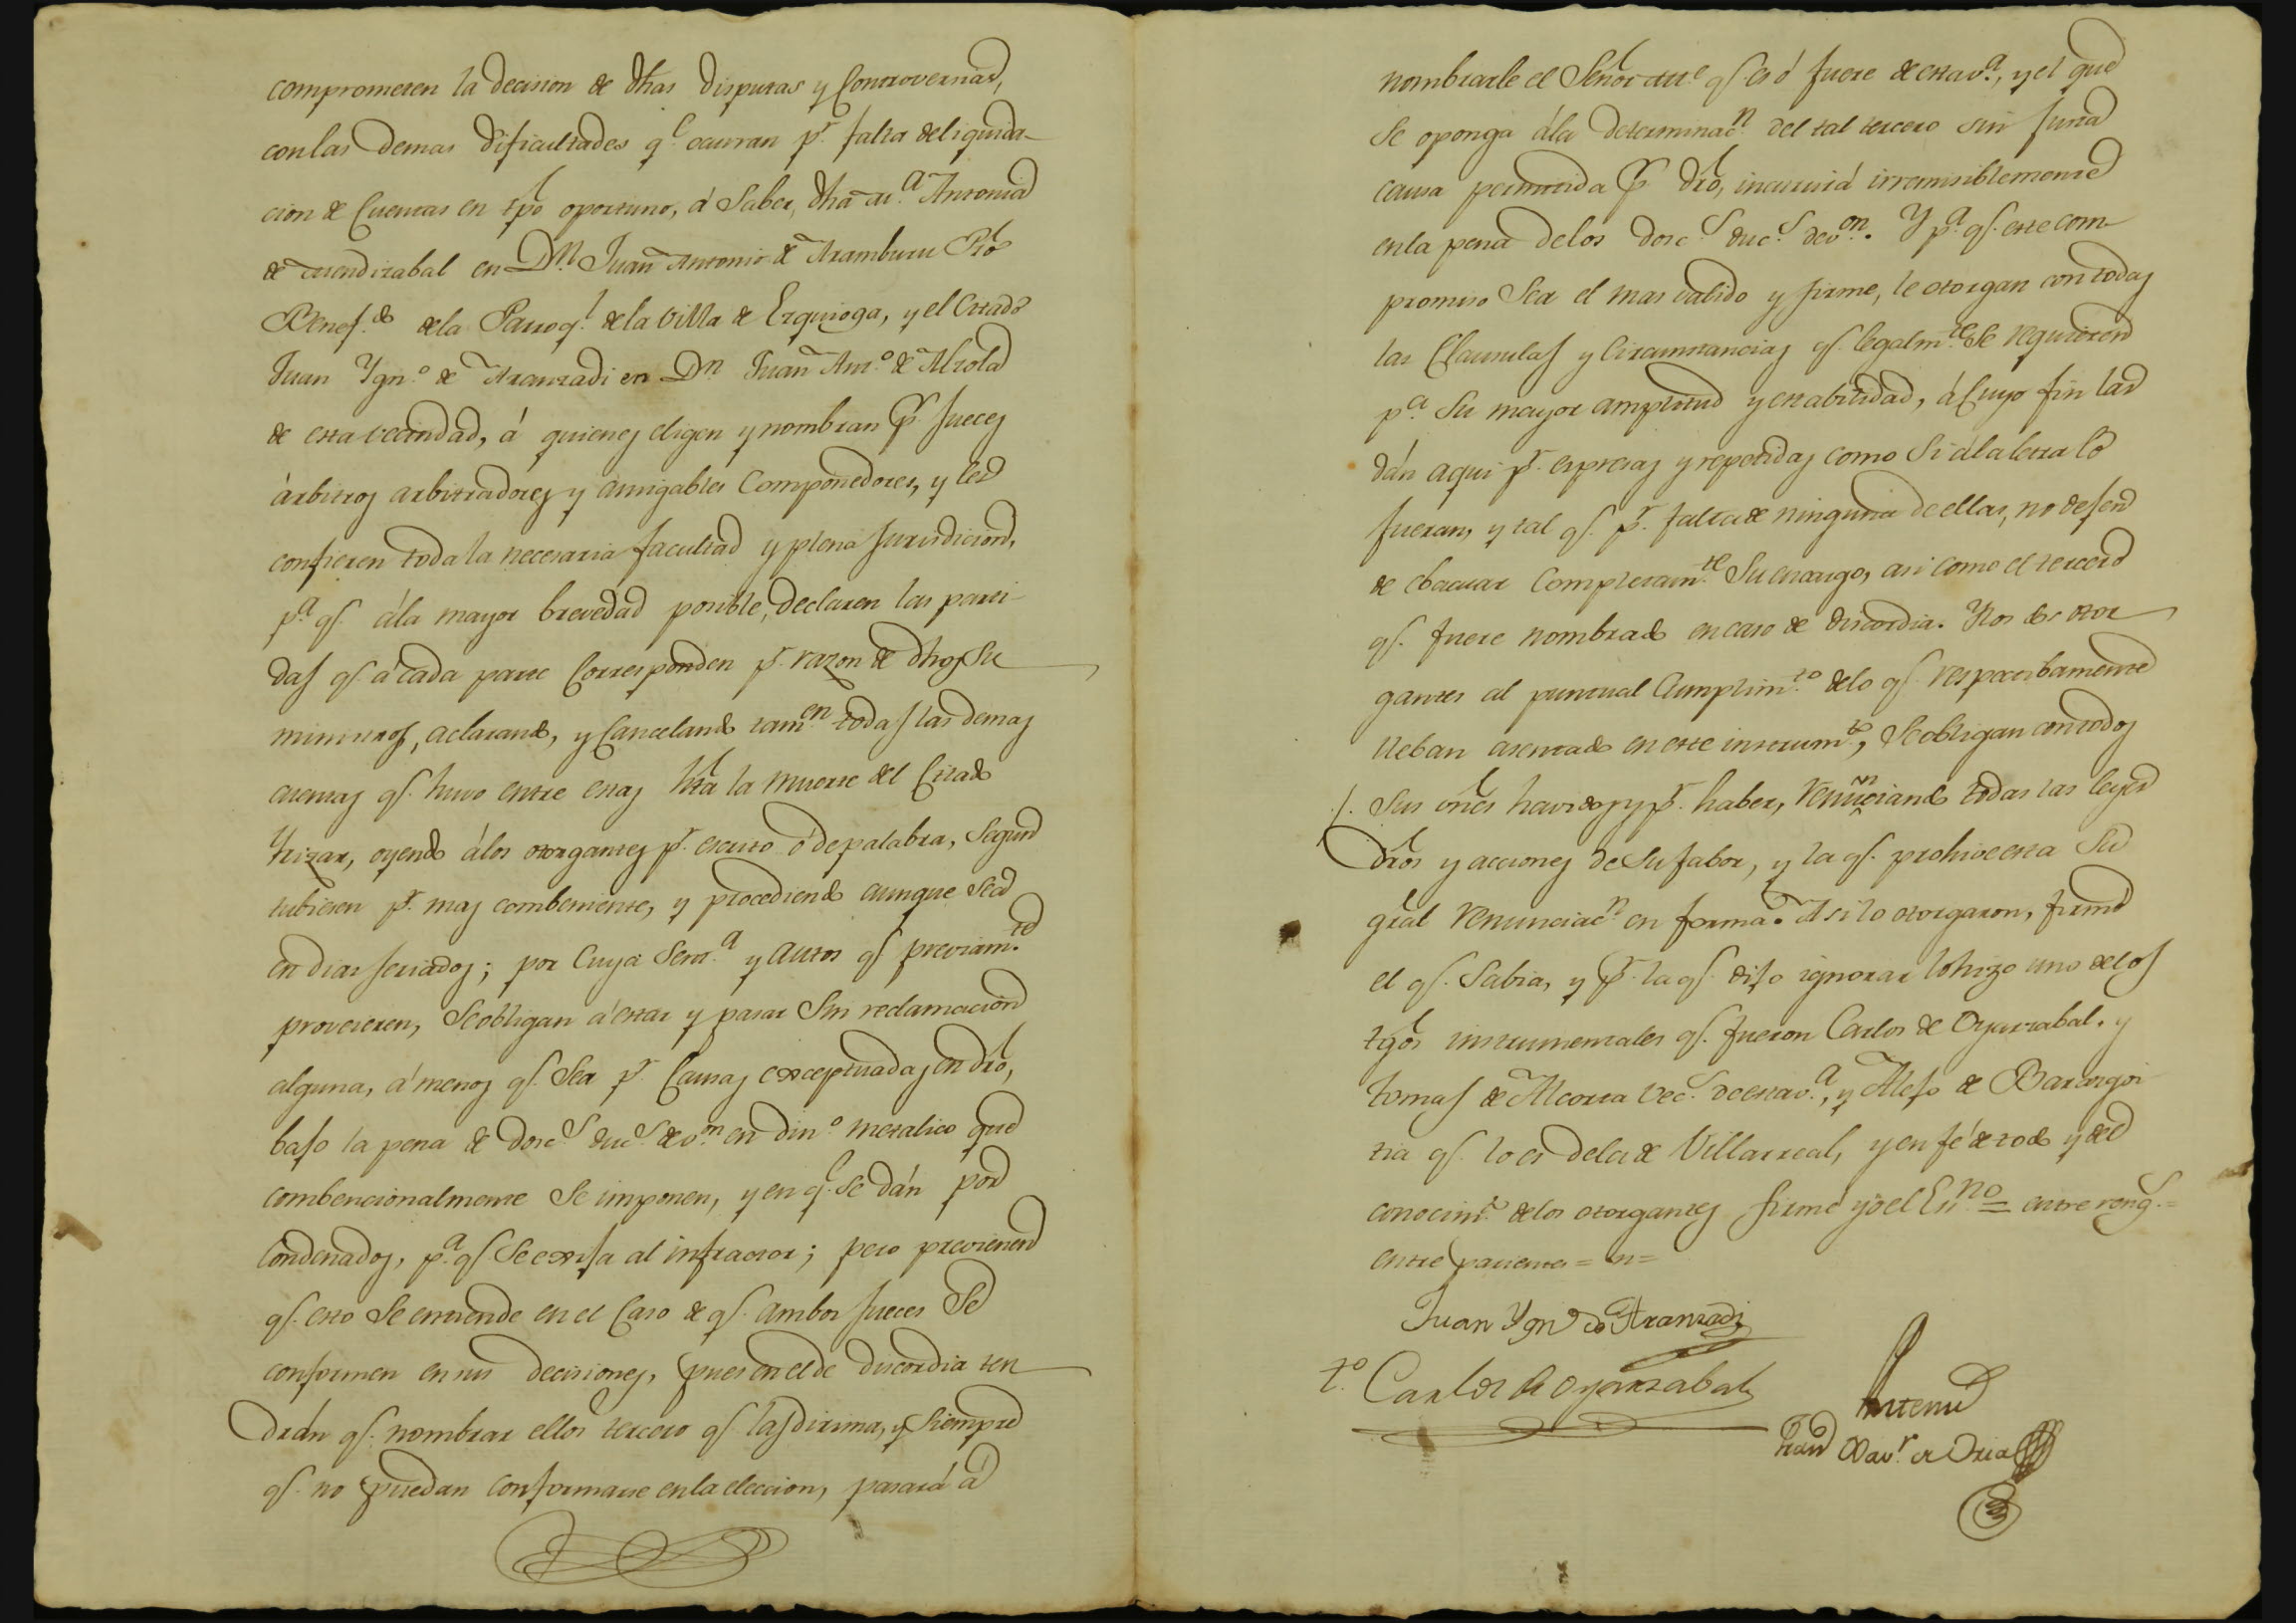 comprometen la decision de dhas disputas y Controversias,
con las demas dificultades q.e ocurran p.r falta de liquida-
cion de Cuentas en tpo oportuno, á Saber, dha M.a Antonia
de Mendizabal en D.n Juan Antonio de Aramburu Pro
Benef.do de la Parroq.l de la Villa de Ezquioga, y el Citado
Juan Ygn.o de Aranzadi en D.n Juan Ant.o de Alzola
de esta vecindad, á quienes eligen y nombran p.r Jueces
árbitros arbitradores y amigables Componedores, y les
confieren toda la necesaria facultad y plena Jurisdicion,
p.a q.e á la mayor brevedad posible, declaren las parti-
das q.e á cada parte Corresponden p.r razon de dhos Su
ministros, aclarando, y Cancelando tam.en todas las demas
cuentas q.e huvo entre estas hta la muerte del Citado
Yrizar, oyendo á los otorgantes p.r escrito ó de palabra, Segun
tubieren p.r mas combeniente, y procediendo aunque Sea
en dias feriados; por Cuya Sent.a y autos q.e previam.te
proveieren, Se obligan á estar y pasar Sin reclamacion
alguna, á menos q.e Sea p.r Causas exceptuadas en dro,
bajo la pena de dosc.s duc.s de v.on en din.o metalico que
combencionalmente Se imponen, y en q.e Se dán por
Condenados, p.a q.e Se exija al infractor; pero previenen
q.e esto Se entiende en el Caso de q.e ambos Jueces Se
conformen en sus decisiones, pues en el de discordia ten
drán q.e nombrar ellos tercero q.e las dirima, y Siempre
q.e no puedan conformarse en la eleccion, pasará á
nombrarle el Señor Alc.e q.e es ó fuere de esta v.a, y el que
Se oponga á la determinac.n del tal tercero sin justa
causa permitida p.r dro, incurrirá irremisiblemente
en la pena de los dosc.s duc.s de v.on. Y p.a q.e este com
promiso Sea el mas valido y firme, le otorgan con todas
las Clausulas y Circunstancias q.e legalm.te Se requieren
p.a Su mayor amplitud y estabilidad, á Cuyo fin las
dán aqui p.r expresas y repetidas como Si á la letra lo
fueran, y tal q.e p.r falta de ninguna de ellas, no dejen
de ebacuar Completam.te Su encargo, asi como el tercero
q.e fuere nombrado en caso de discordia. Y los dos otor
gantes al puntual Cumplim.to de lo q.e respectibamente
lleban asentado en este instrum.to, Se obligan con todos
Sus vnes havidos y p.r haber, renunciando todas las leyes
dros y acciones de Su fabor, y la q.e prohive esta Su
gral renunciac.n en forma. Asi lo otorgaron, firmó
el q.e Sabia, y p.r la q.e dijo ignorar lo hizo uno de los
tgos instrumentales q.e fueron Carlos de Oyarzabal, y
Tomas de Alcorta vec.s de esta v.a, y Alejo de Barargoi
tia q.e lo es de la de Villarreal, y en fé de todo y de el
conocim.to de los otorgantes firmé yo el Es.no = entre reng.s =
entre parientes = n =
Juan Ygn.o de Aranzadi
t.o Carlos de Oyarzabal
Ante mi
Fran.co Xav.r de Oria